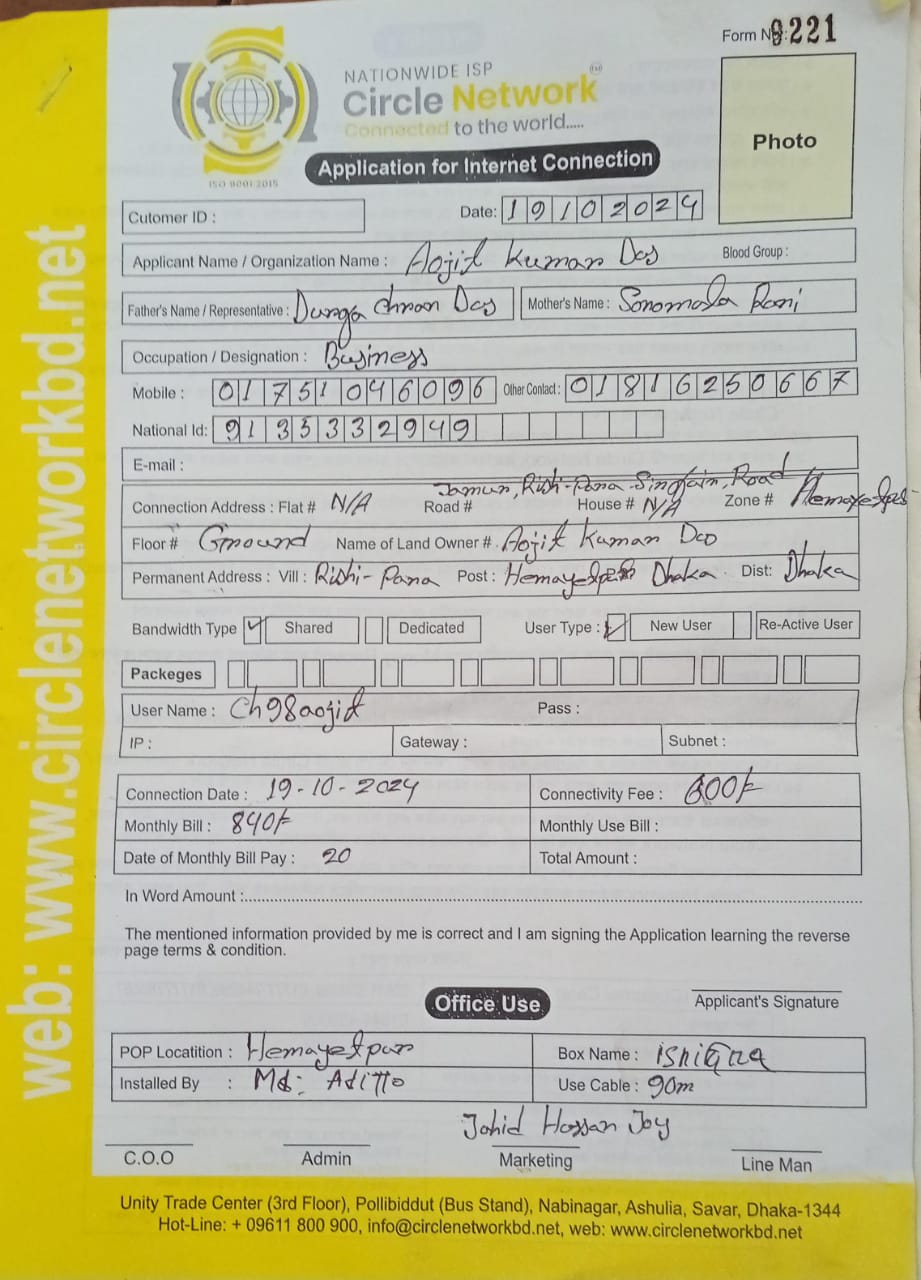 Form No: 9221
NATIONWIDE ISP
Circle Network
Connected to the world.....
ISO 9001:2015
Application for Internet Connection
Photo
Cutomer ID :
Date: 19102024
Applicant Name / Organization Name : Aojit Kuman Das Blood Group :
Father's Name / Representative : Dunga Chnan Das Mother's Name : Sonomala Rani
Occupation / Designation : Business
Mobile : 01751046096 Other Contact : 01816250667
National Id: 9135332949
E-mail :
Jamun, Rishi-Pana Singain, Road
Connection Address : Flat # N/A Road # House # N/A Zone # Hemayetpur
Floor # Ground Name of Land Owner # Aojit Kuman Das
Permanent Address : Vill : Rishi-Pana Post : Hemayetpur Dhaka Dist: Dhaka
Bandwidth Type ✓ Shared Dedicated User Type : ✓ New User Re-Active User
Packeges
User Name : Ch98aojit Pass :
IP : Gateway : Subnet :
Connection Date : 19-10-2024 Connectivity Fee : 600/-
Monthly Bill : 840/- Monthly Use Bill :
Date of Monthly Bill Pay : 20 Total Amount :
In Word Amount :
The mentioned information provided by me is correct and I am signing the Application learning the reverse
page terms & condition.
Office Use
Applicant's Signature
POP Locatition : Hemayetpur Box Name :
Installed By : Md: Aditto Use Cable : 90m
Jahid Hossan Joy
C.O.O Admin Marketing Line Man
Unity Trade Center (3rd Floor), Pollibiddut (Bus Stand), Nabinagar, Ashulia, Savar, Dhaka-1344
Hot-Line: + 09611 800 900, info@circlenetworkbd.net, web: www.circlenetworkbd.net
web: www.circlenetworkbd.net